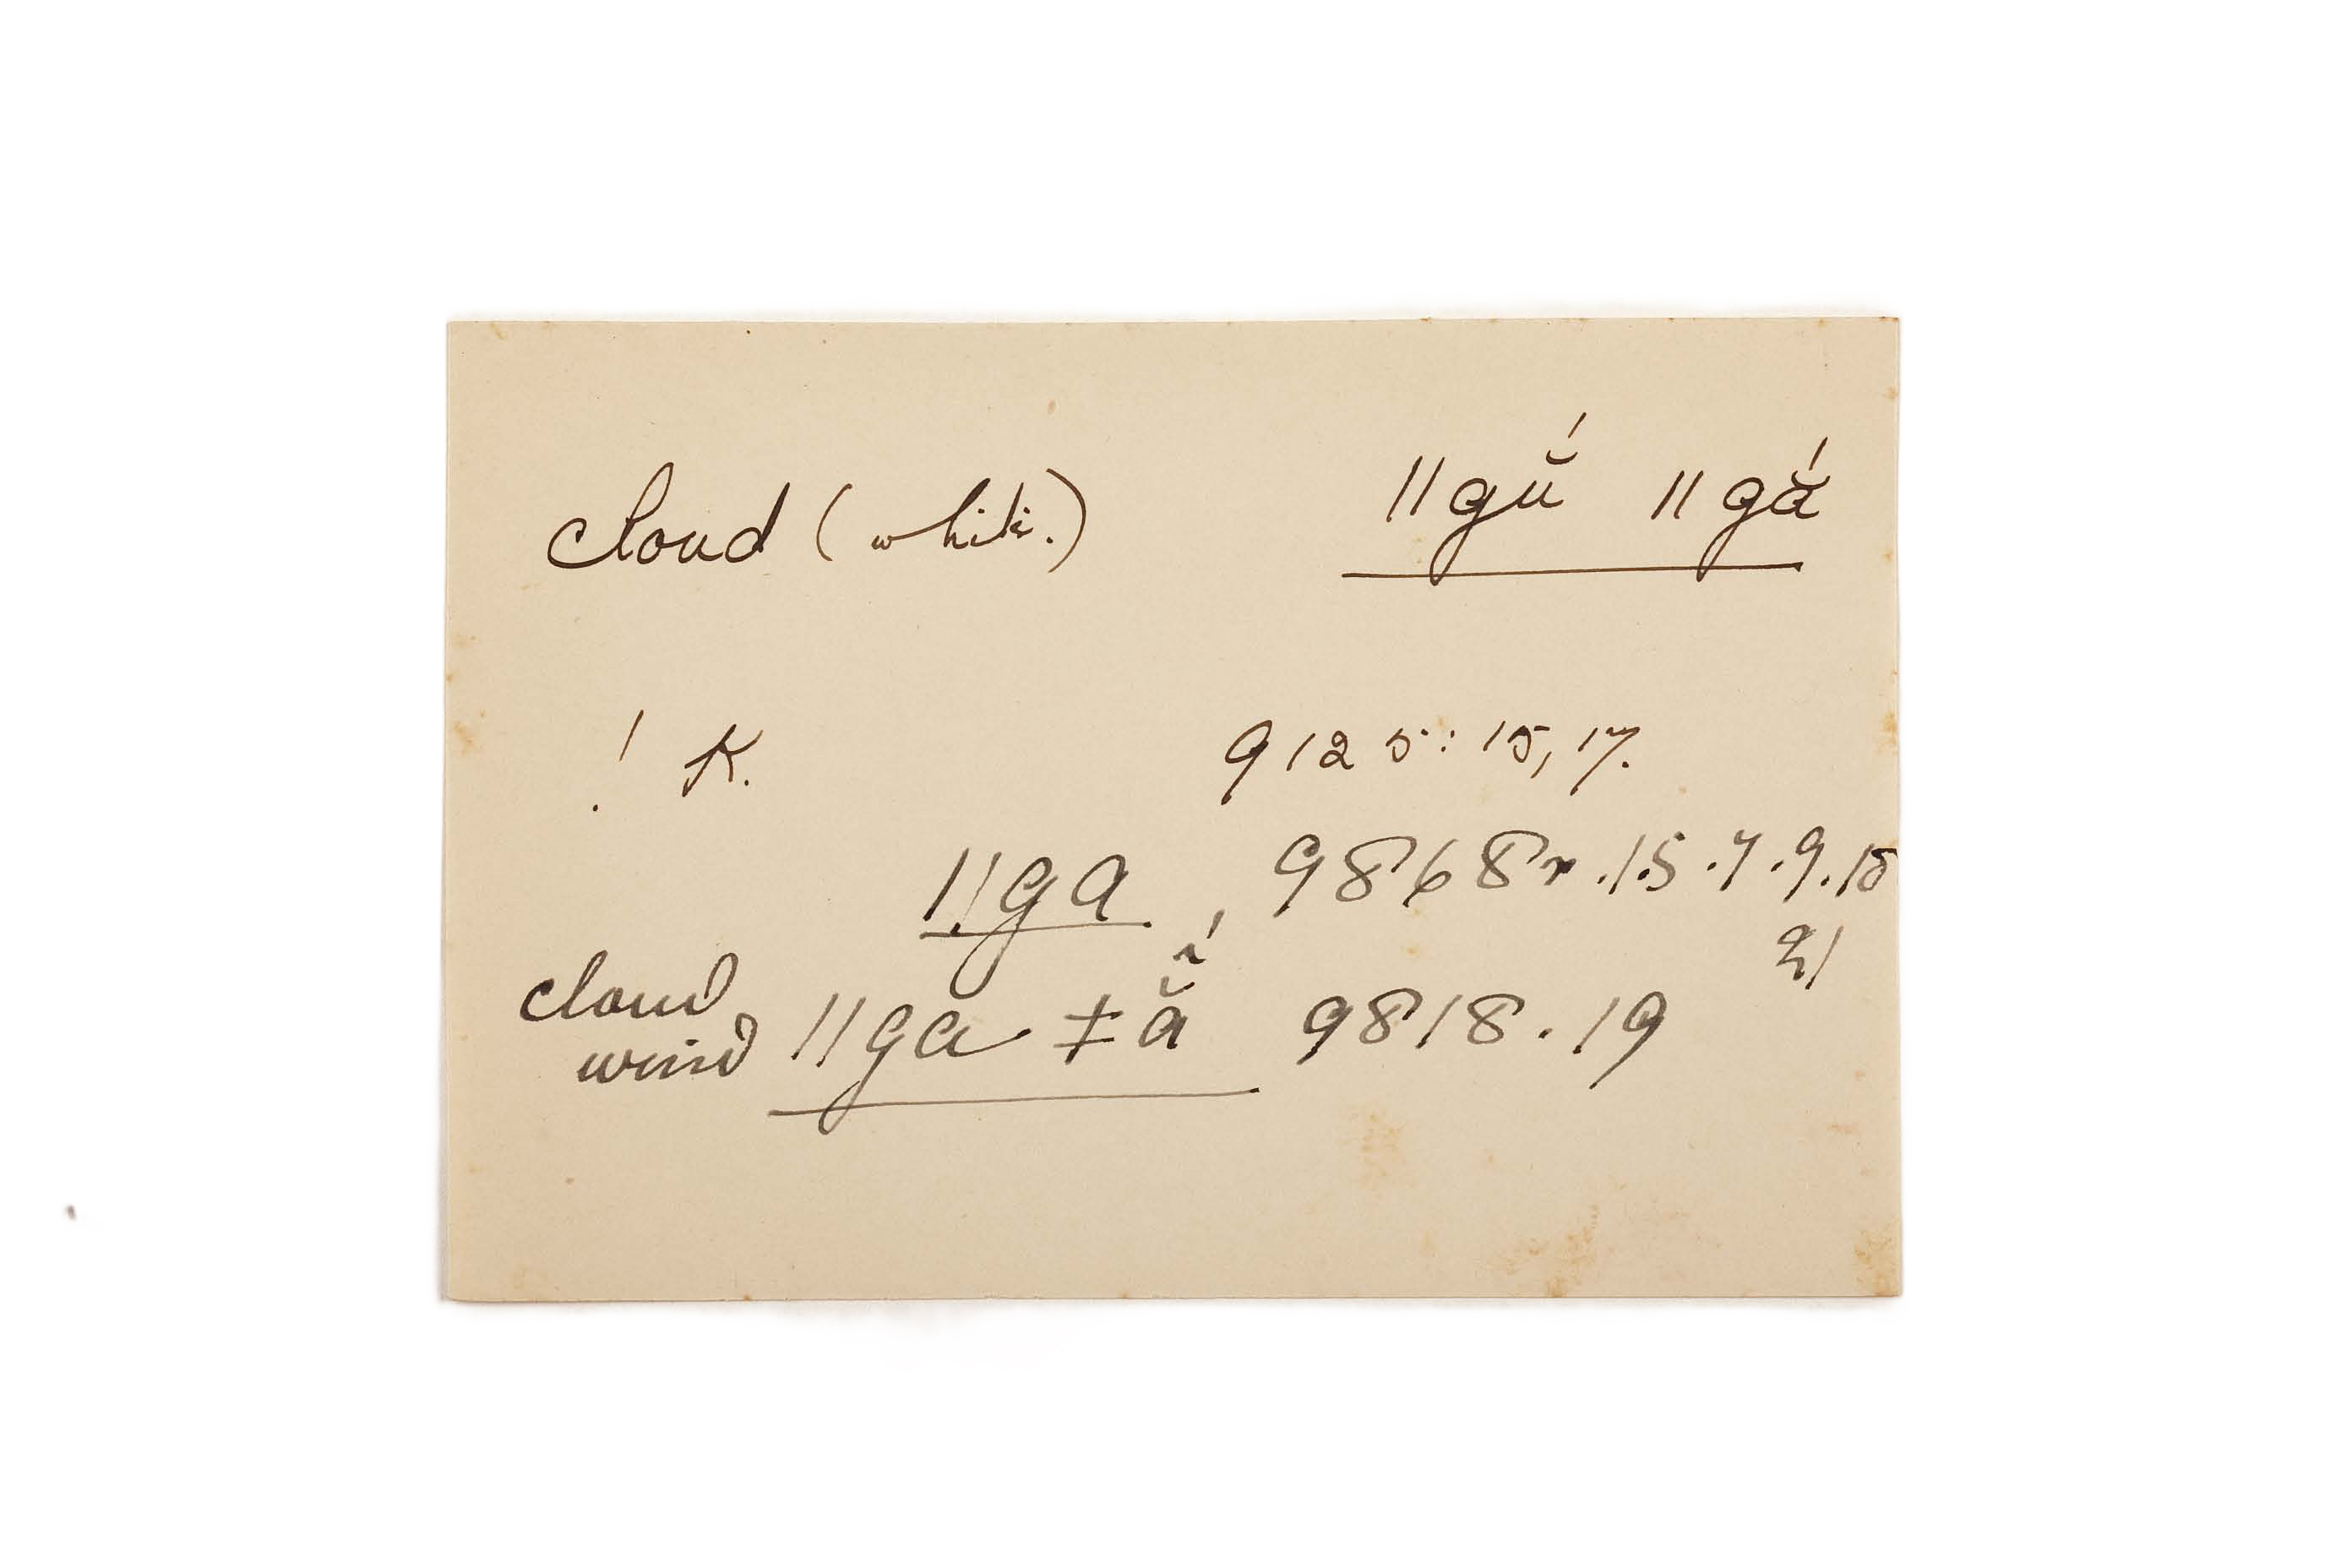 cloud (white.) ǁgŭ́ ǁgắ
! K. 9125: 15, 17.
ǁga 9868r. 15. 7. 9. 15
21
cloud
wind ǁga ǂẵ́ 9818. 19